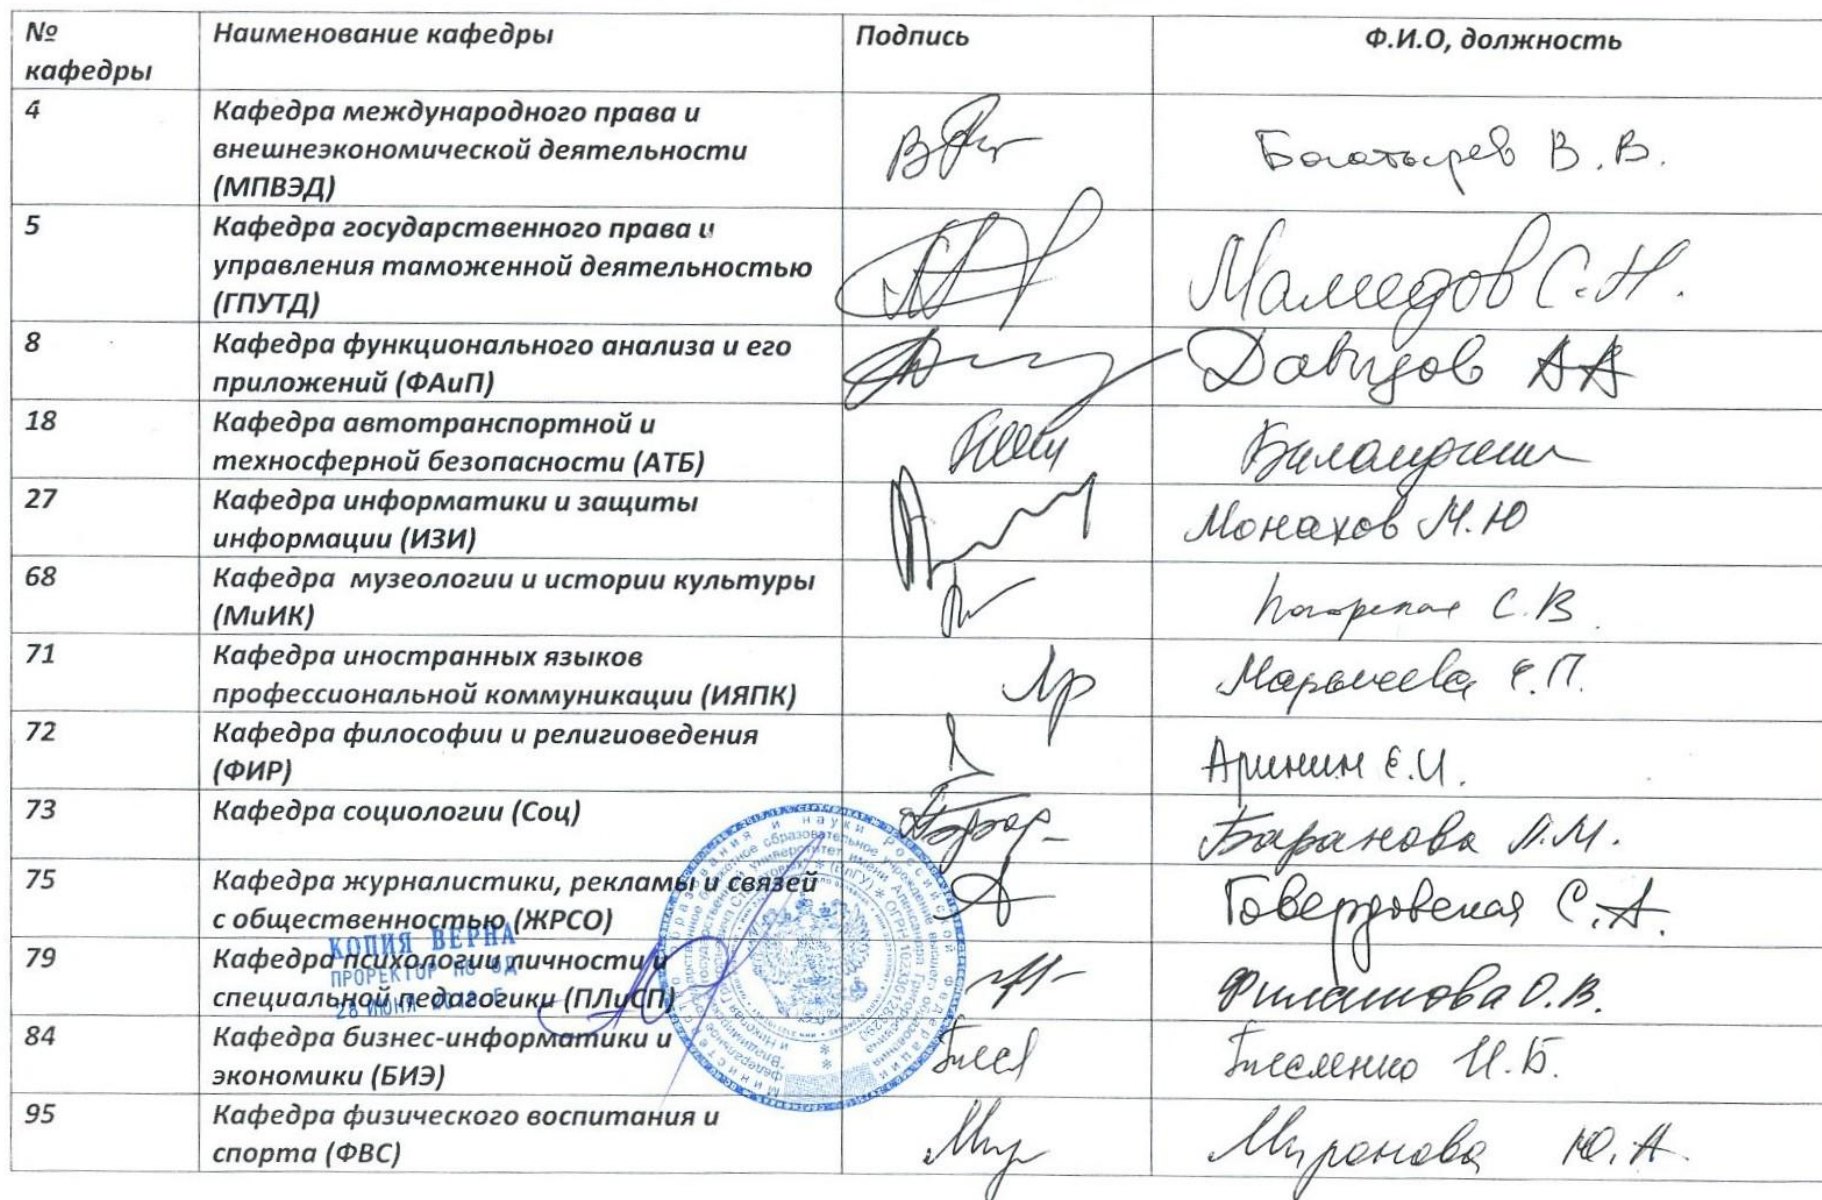 № кафедры Наименование кафедры Подпись Ф.И.О, должность
4 Кафедра международного права и
внешнеэкономической деятельности
(МПВЭД)
Богатырев В. В.
5 Кафедра государственного права и
управления таможенной деятельностью
(ГПУТД)
Мамедов С.Н.
8 Кафедра функционального анализа и его
приложений (ФАиП)
Давыдов АА
18 Кафедра автотранспортной и
техносферной безопасности (АТБ)
27 Кафедра информатики и защиты
информации (ИЗИ)
Монахов М.Ю
68 Кафедра музеологии и истории культуры
(МиИК)
С.В.
71 Кафедра иностранных языков
профессиональной коммуникации (ИЯПК)
Марычева Е.П.
72 Кафедра философии и религиоведения
(ФИР)
Аринин Е.И.
73 Кафедра социологии (Соц)
Баранова Л.М.
75 Кафедра журналистики, рекламы и связей
с общественностью (ЖРСО)
Говердовская С.А.
КОПИЯ ВЕРНА
ПРОРЕКТОР ПО ОД
79 Кафедра психологии личности и
специальной педагогики (ПЛиСП)
Филатова О.В.
84 Кафедра бизнес-информатики и
экономики (БИЭ)
Тесленко И.Б.
95 Кафедра физического воспитания и
спорта (ФВС)
Миронова Ю.А.